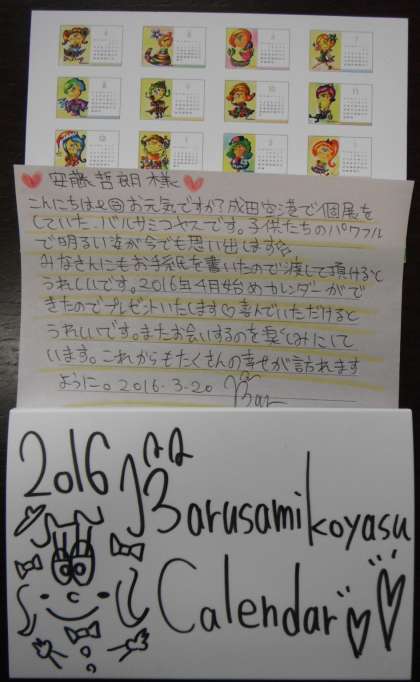 4
5
6
7
8
9
10
11
12
1
2
3
安藤哲朗様
こんにちは お元気ですか?成田空港で個展を
していた、バルサミコヤスです。子供たちのパワフル
で明るい姿が今でも思い出します☆
みなさんにもお手紙を書いたので渡して頂けると
うれしいです。2016年4月始めカレンダーがで
きたのでプレゼントいたします♡喜んでいただけると
うれしいです。またお会いするのを楽しみにして
います。これからもたくさんの幸せが訪れます
ように。2016.3.20 Bar
2016 Barusamikoyasu
Calendar